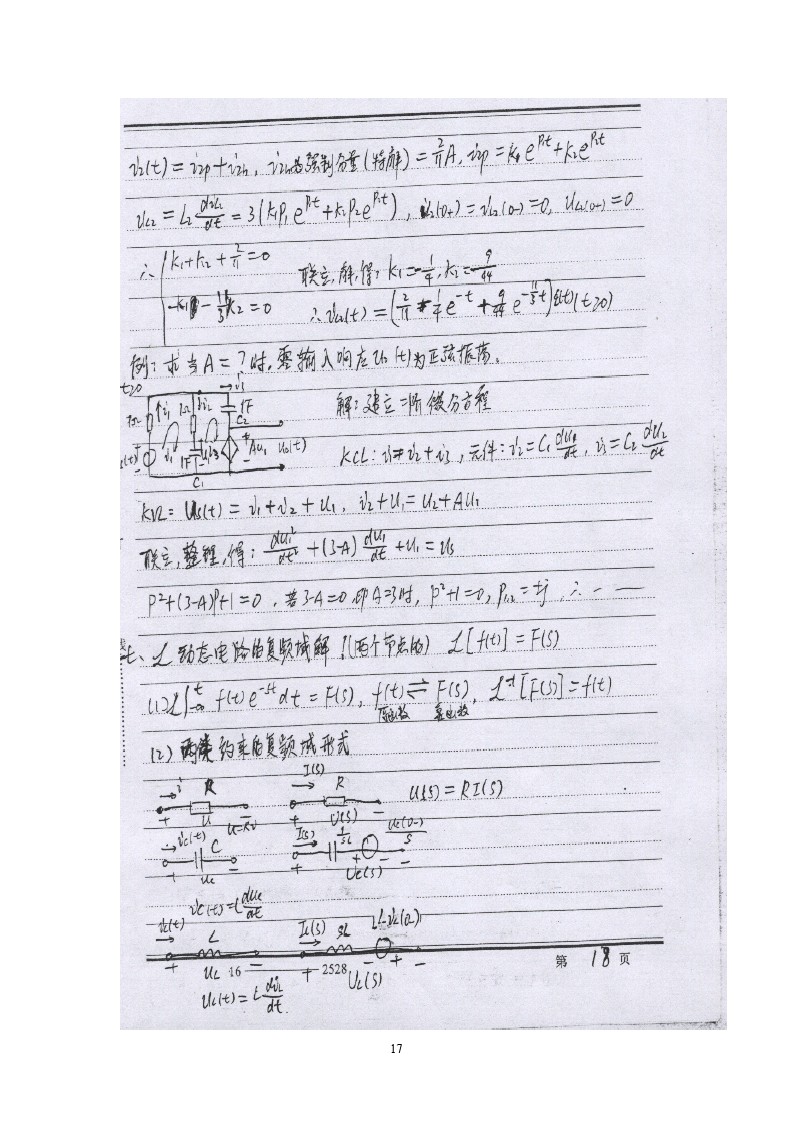 i₂(t) = i₂p + i₂h, i₂h为强制分量(特解) = 2/11 A, i₂p = k₁e^{P₁t} + k₂e^{P₂t}
u_{L2} = L₂ di_{L2}/dt = 3(k₁P₁e^{P₁t} + k₂P₂e^{P₂t}), i_{L2}(0+) = i_{L2}(0-) = 0, u_{L2}(0+) = 0
∴ { k₁ + k₂ + 2/11 = 0
-k₁ - 11/3 k₂ = 0
联立, 解, 得: k₁ = -1/4, k₂ = 9/44
∴ i_{L2}(t) = (2/11 - 1/4 e^{-t} + 9/44 e^{-11/3 t}) ε(t) (t≥0)
例: 求当A = ? 时, 零输入响应u₀(t)为正弦振荡。
t≥0
解: 建立二阶微分方程
1Ω i₁ 1Ω i₂ i₃ 1F C₂
1F C₁ Au₁ u₀(t)
KCL: i₁ = i₂ + i₃, 元件: i₂ = C₁ du₁/dt, i₃ = C₂ du₂/dt
KVL: Us(t) = i₁ + i₂ + u₁, i₂ + u₁ = u₂ + Au₁
联立, 整理, 得: du₁²/dt + (3-A) du₁/dt + u₁ = us
P² + (3-A)P + 1 = 0, 若3-A = 0 即A=3时, P²+1 = 0, P₁,₂ = ±j, ∴ — —
七、ℒ 动态电路的复频域解 (两个节点的) ℒ[f(t)] = F(S)
(1) f(t)e^{-st}dt = F(S), f(t) ⇌ F(S), ℒ⁻¹[F(S)] = f(t)
原函数 象函数
(2) 两类约束的复频域形式
i R I(S) R
+ U − U=Ri + U(S) − U(S) = RI(S)
i_C(t) C I(S) 1/SC U_C(0-)/S
+ u_C − + U_C(S) −
i_C(t) = C du_C/dt
i_L(t) L I_L(S) SL L·i_L(0-)
+ U_L − + U_L(S) − + −
16 2528
第 18 页
U_L(t) = L di_L/dt
17